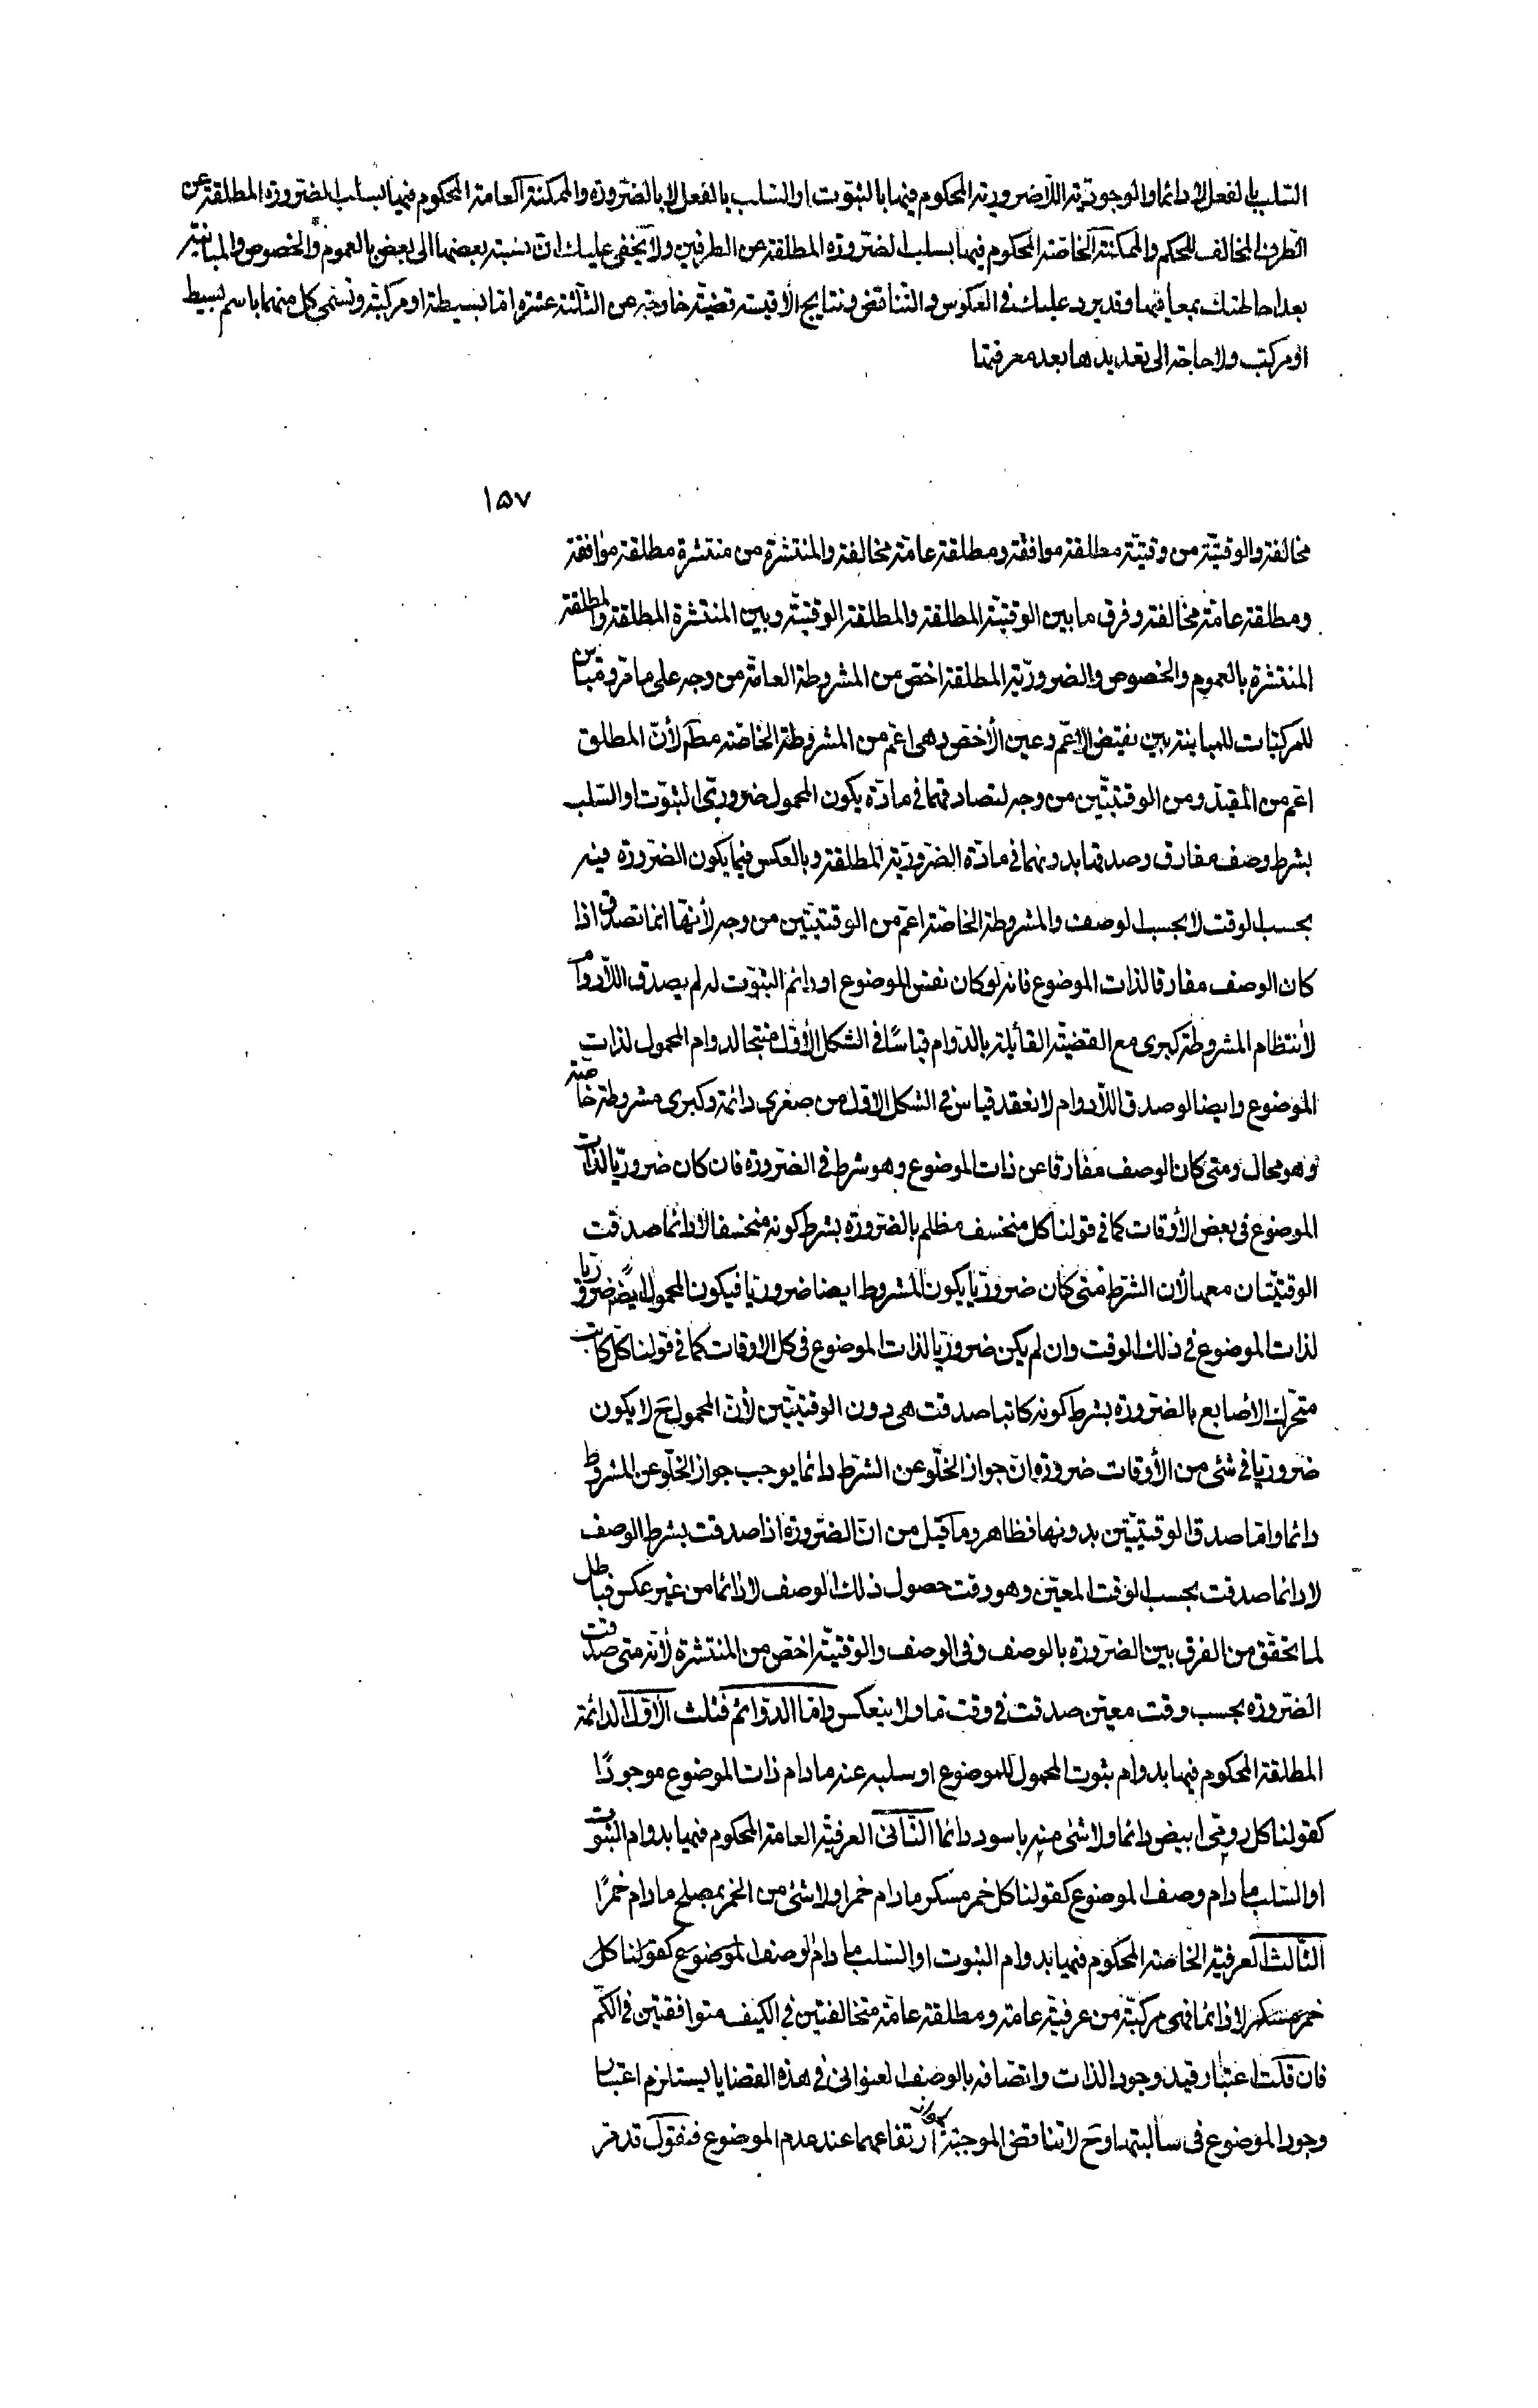 السّلب بالفعل لا دائما والوجوديّة اللّاضروريّة المحكوم فيها بالثبوت او السّلب بالفعل لا بالضّرورة والممكنة العامة المحكوم فيها بسلب الضّرورة المطلقة عن
الطّرف المخالف للحكم والممكنة الخاصّة المحكوم فيها بسلب الضّرورة المطلقة عن الطرفين ولا يخفى عليك ان نسبة بعضها الى بعض بالعموم والخصوص والمباينة
بعد احاطتك بمعانيها وقد يرد عليك في العكوس والتّناقض ونتايج الأقيسة قضيّة خارجة عن الثلثة عشرة امّا بسيطة او مركبّة وتسمّى كل منهما باسم بسيط
او مركّب ولا حاجة الى تعديدها بعد معرفتها
١٥٧
مخالفة والوقتيّة من وقتيّة مطلقة موافقة ومطلقة عامّة مخالفة والمنتشرة من منتشرة مطلقة موافقة
ومطلقة عامّة مخالفة وفرق ما بين الوقتيّة المطلقة والمطلقة الوقتيّة وبين المنتشرة المطلقة والمطلقة
المنتشرة بالعموم والخصوص والضروريّة المطلقة اخصّ من المشروطة العامّة من وجه على ما مرّ ومباين
للمركبّات للمباينة بين نقيض الاعمّ وعين الأخصّ وهى اعمّ من المشروطة الخاصّة مطلقا لأنّ المطلق
اعم من المقيّد ومن الوقتيّتين من وجه لتصادقهما في مادّة يكون المحمول ضروريّ الثبوت او السّلب
بشرط وصف مفارق وصدقها بدونهما في مادّة الضّروريّة المطلقة وبالعكس فيما يكون الضّرورة فيه
بحسب الوقت لا بحسب الوصف والمشروطة الخاصّة اعمّ من الوقتيّتين من وجه لأنّها انما تصدق اذا
كان الوصف مفارقا لذات الموضوع فانه لو كان نفس الموضوع او دائم الثبوت له لم يصدق اللّادوام
لأنتظام المشروطة كبرى مع القضيّة القائلة بالدّوام قياسًا في الشكل الأوّل منتجا لدوام المحمول لذات
الموضوع وايضا لو صدق اللّادوام لانعقد قياس في الشكل الاوّل من صغرى دائمة وكبرى مشروطة خاصّة
وهو محال ومتى كان الوصف مفارقا عن ذات الموضوع وهو شرط في الضّرورة فان كان ضروريّا لذات
الموضوع في بعض الأوقات كما في قولنا كل منخسف مظلم بالضّرورة بشرط كونه منخسفا لا دائما صدقت
الوقتيّتان معها لأن الشّرط متى كان ضروريّا يكون المشروط ايضا ضروريّا فيكون المحمول ايضا ضروريّا
لذات الموضوع في ذلك الوقت وان لم يكن ضروريّا لذات الموضوع في كل الاوقات كما في قولنا كل كاتب
متحرّك الاصابع بالضّرورة بشرط كونه كاتبا صدقت هى دون الوقتيّتين لأنّ المحمول ح لا يكون
ضروريّا في شئ من الأوقات ضرورة انّ جواز الخلّو عن الشّرط دائما يوجب جواز الخلّو عن المشروط
دائما وامّا صدق الوقتيّتين بدونها فظاهر وما قيل من انّ الضّرورة اذا صدقت بشرط الوصف
لا دائما صدقت بحسب الوقت المعيّن وهو وقت حصول ذلك الوصف لا دائما من غير عكس فباطل
لما تحقّق من الفرق بين الضّرورة بالوصف وفي الوصف والوقتيّة اخصّ من المنتشرة لأنّه متى صدقت
الضّرورة بحسب وقت معيّن صدقت في وقت ما ولا ينعكس وامّا الدّوائم فثلث الأوّل الدائمة
المطلقة المحكوم فيها بدوام ثبوت المحمول للموضوع او سلبه عنه ما دام ذات الموضوع موجودًا
كقولنا كل روميّ ابيض دائما ولا شئ منه باسود دائما الثّانى العرفيّة العامة المحكوم فيها بدوام الثبوت
او السّلب ما دام وصف الموضوع كقولنا كل خمر مسكر ما دام خمرا ولا شئ من الخمر بمصلح ما دام خمرًا
الثّالث العرفيّة الخاصة المحكوم فيها بدوام الثبوت او السّلب ما دام الوصف الموضوع كقولنا كل
خمر مسكر لا دائما فهى مركبّة من عرفيّة عامة ومطلقة عامّة متخالفتين في الكيف متوافقتين في الكمّ
فان قلت اعتبار قيد وجود الذات واتصّافه بالوصف العنوانى في هذه القضايا يستلزم اعتبار
وجود الموضوع في سالبتها وح لا تناقض الموجبة لجواز ارتفاعهما عند عدم الموضوع فنقول قد مرّ